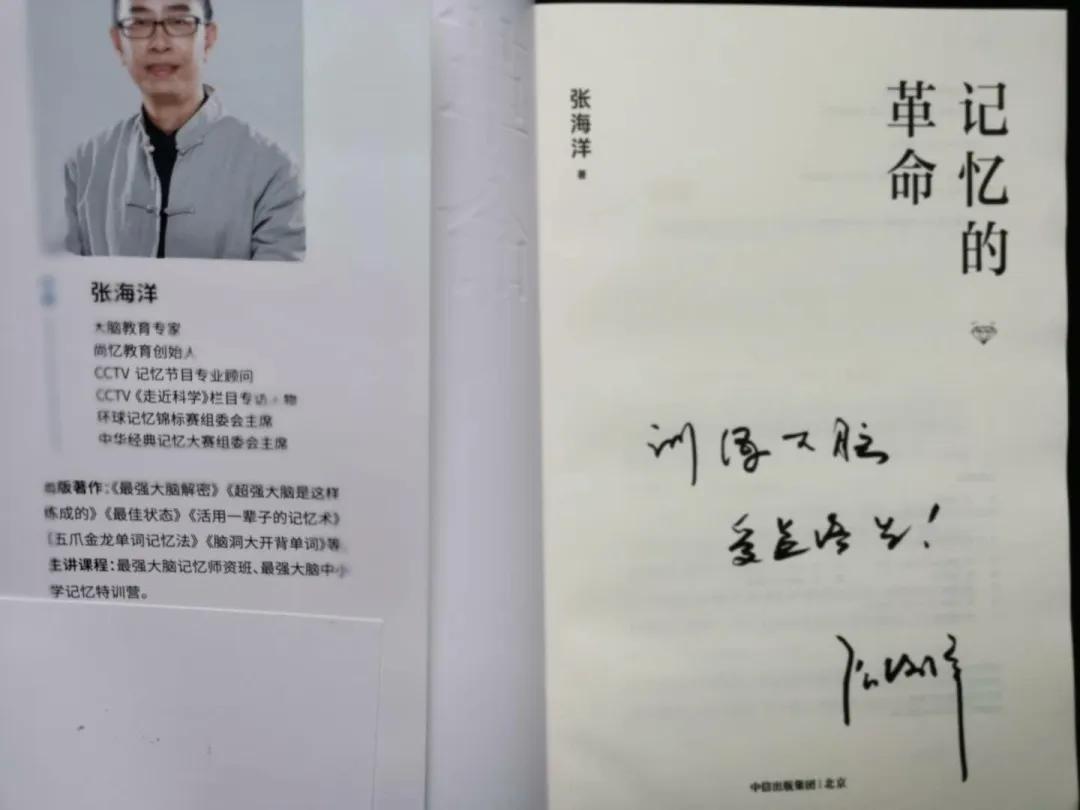 张海洋
大脑教育专家
尚忆教育创始人
CCTV 记忆节目专业顾问
CCTV《走近科学》栏目专访人物
环球记忆锦标赛组委会主席
中华经典记忆大赛组委会主席
出版著作:《最强大脑解密》《超强大脑是这样
练成的》《最佳状态》《活用一辈子的记忆术》
《五爪金龙单词记忆法》《脑洞大开背单词》等。
主讲课程:最强大脑记忆师资班、最强大脑中小
学记忆特训营。
记忆的
革命
张海洋 著
训练大脑
受益终生!
张海洋
中信出版集团|北京